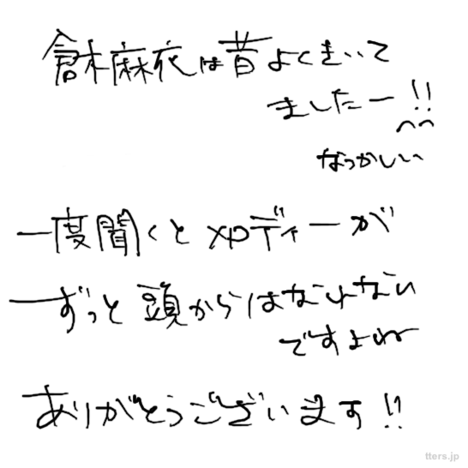 倉木麻衣は昔よくきいて
ましたー!!
^^
なつかしい
一度聞くとメロディーが
ずっと頭からはなれない
ですよね
ありがとうございます!!
tters.jp